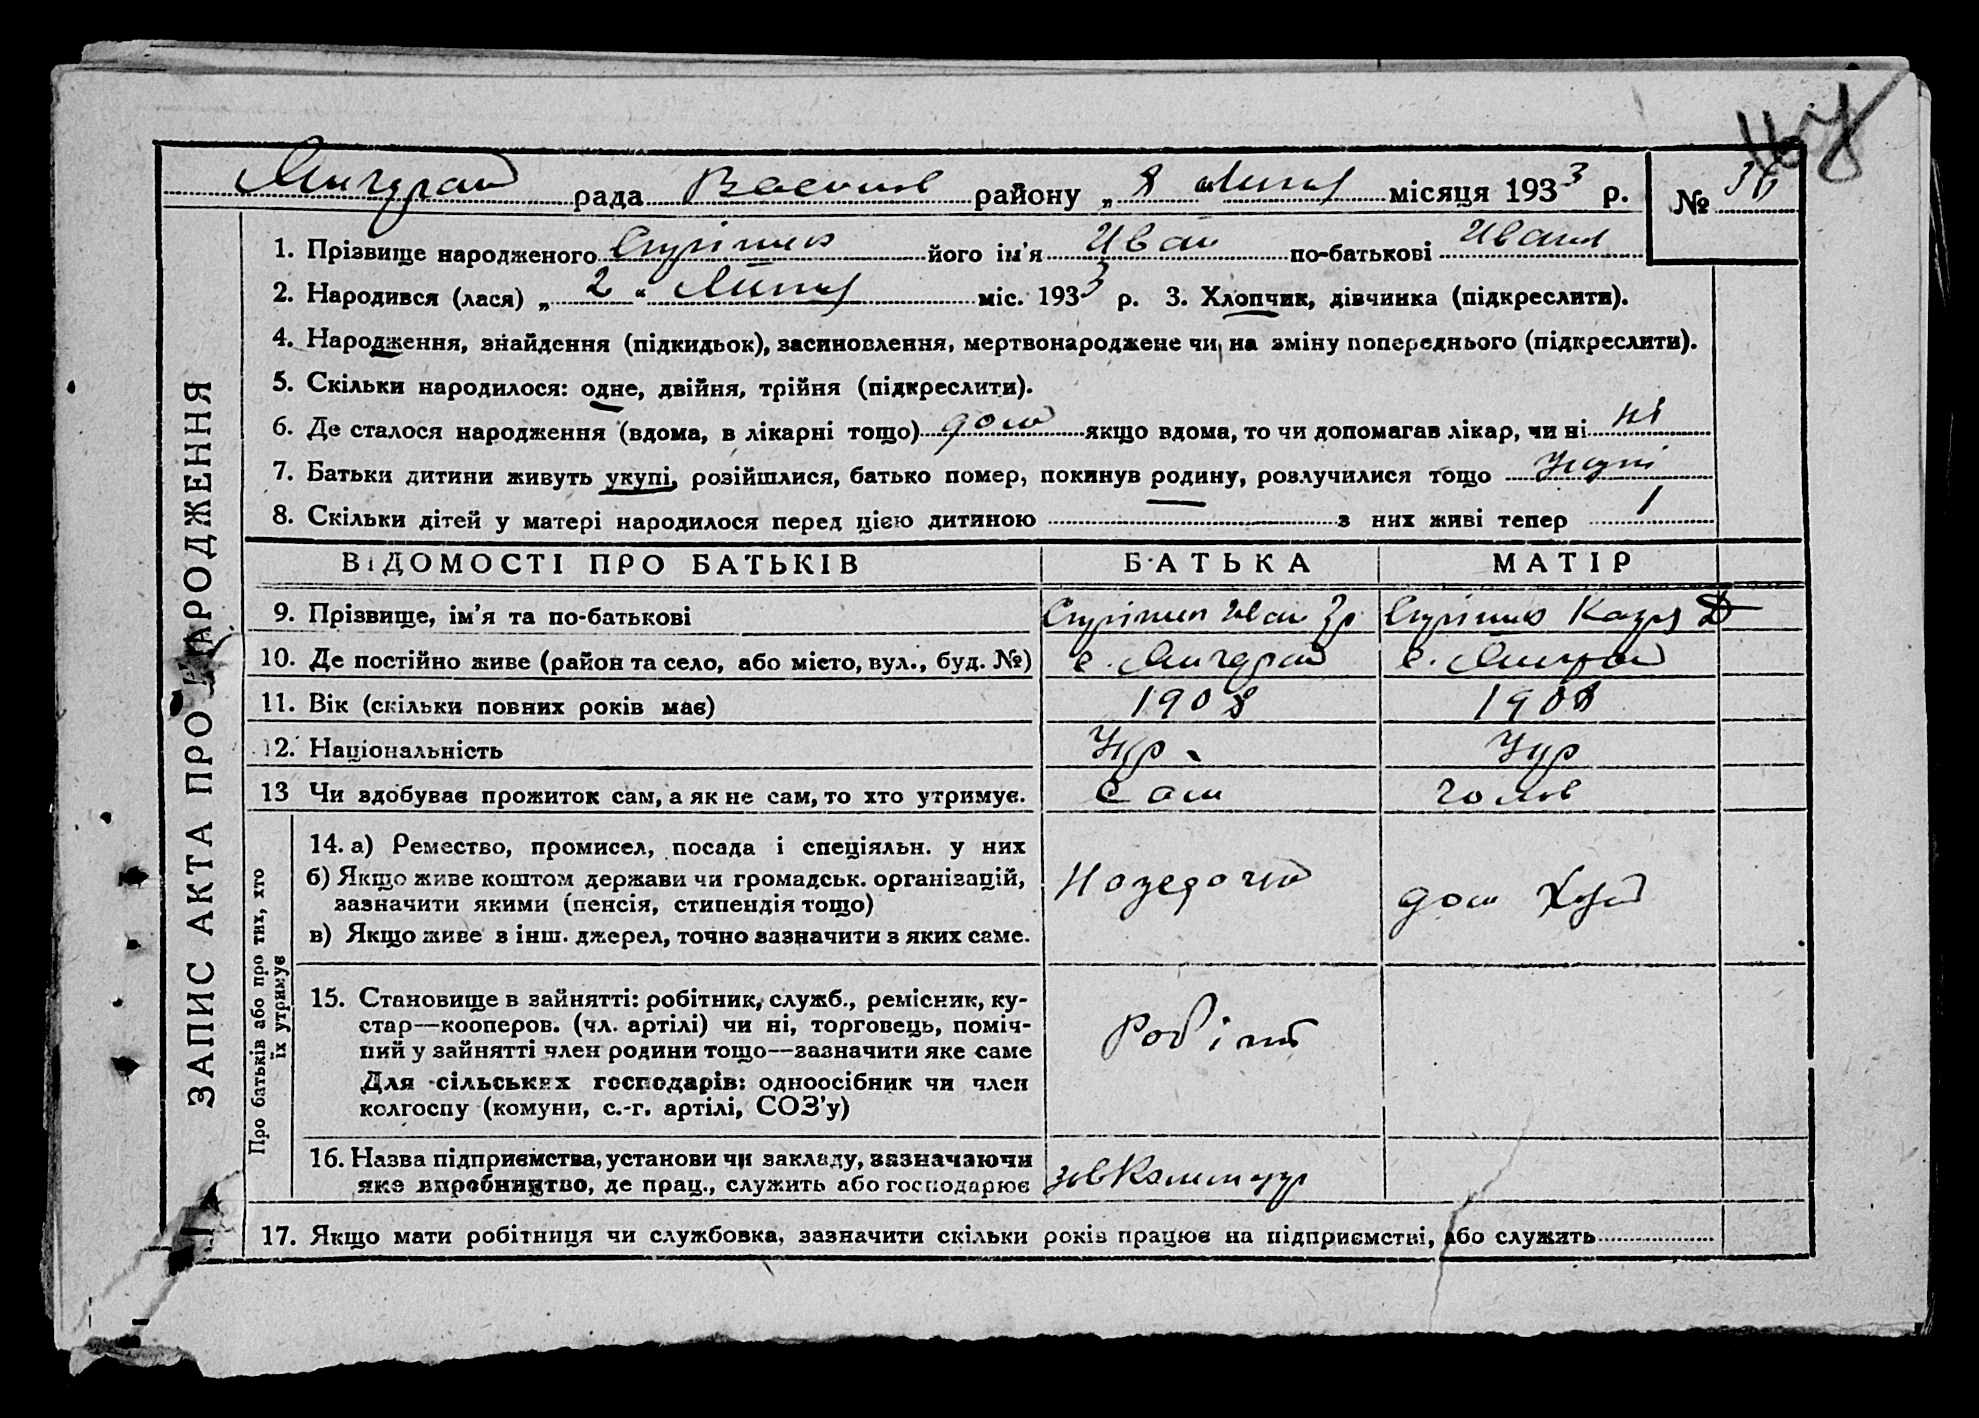 рада район​у „ 8 Липня місяця 1933 р. №
1. Прізвище народженого його ім'я Иван по-батькові Иванов
2. Народився (лася) „ 2 “ Липня міс. 1933 р. 3. Хлопчик, дівчинка (підкреслити).
4. Народження, знайдення (підкидьок), засиновлення, мертвонароджене чи на зміну попереднього (підкреслити).
5. Скільки народилося: одне, двійня, трійня (підкреслити).
6. Де сталося народження (вдома, в лікарні тощо) дом якщо вдома, то чи допомагав лікар, чи ні ні
7. Батьки дитини живуть укупі, розійшлися, батько помер, покинув родину, розлучилися тощо Укупі
8. Скільки дітей у матері народилося перед цією дитиною — з них живі тепер 1
ЗАПИС АКТА ПРО НАРОДЖЕННЯ
ВІДОМОСТІ ПРО БАТЬКІВ БАТЬКА МАТІР
9. Прізвище, ім'я та по-батькові Иван Гр
10. Де постійно живе (район та село, або місто, вул., буд. №) с. с.
11. Вік (скільки повних років має) 1908 1908
12. Національність Укр. Укр
13 Чи здобуває прожиток сам, а як не сам, то хто утримує. Сам чолов
Про батьків або про тих, хто
їх утримує
14. а) Ремество, промисел, посада і спеціяльн. у них
б) Якщо живе коштом держави чи громадськ. організацій,
зазначити якими (пенсія, стипендія тощо)
в) Якщо живе з інш. джерел, точно зазначити з яких саме.
дом Хуз
15. Становище в зайнятті: робітник, служб., ремісник, ку-
стар—кооперов. (чл. артілі) чи ні, торговець, поміч-
ний у зайнятті член родини тощо—зазначити яке саме
Для сільських господарів: одноосібник чи член
колгоспу (комуни, с.-г. артілі, СОЗ'у)
Робітн
16. Назва підприємства, установи чи закладу, зазначаючи
яке виробництво, де прац., служить або господарює
17. Якщо мати робітниця чи службовка, зазначити скільки років працює на підприємстві, або служить